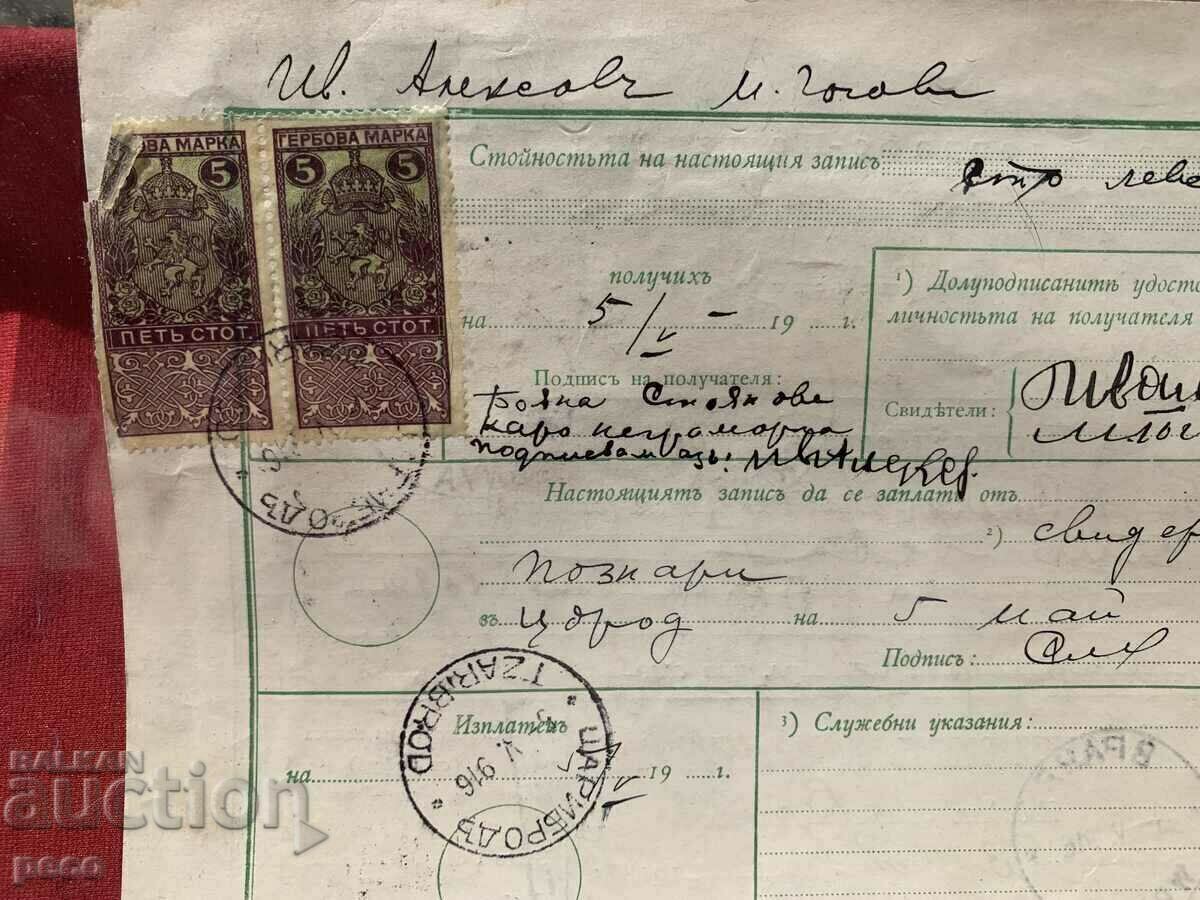 Ив. Алексовъ М. Гогов
ОВА МАРКА
5
ГЕРБОВА МАРКА
5 5
ПЕТЬ СТОТ.
ПЕТЬ СТОТ.
Стойностьта на настоящия записъ
сто лева
получихъ
на 5/V - 19 г.
Подписъ на получателя:
Бояна Стоянова
като неграмотна
подписвам азъ: Ив Алексов
¹) Долуподписанитѣ удосто
личностьта на получателя
Свидѣтели: Иван
Настоящиятъ записъ да се заплати отъ
²) свидет
познати
въ Цброд на 5 май
Подписъ:
Изплатенъ
на 19 г.
ЦАРИБРОДЪ
TZARIBROD
5 V 916
³) Служебни указания:
ВРА
BALKAN
auction
peco